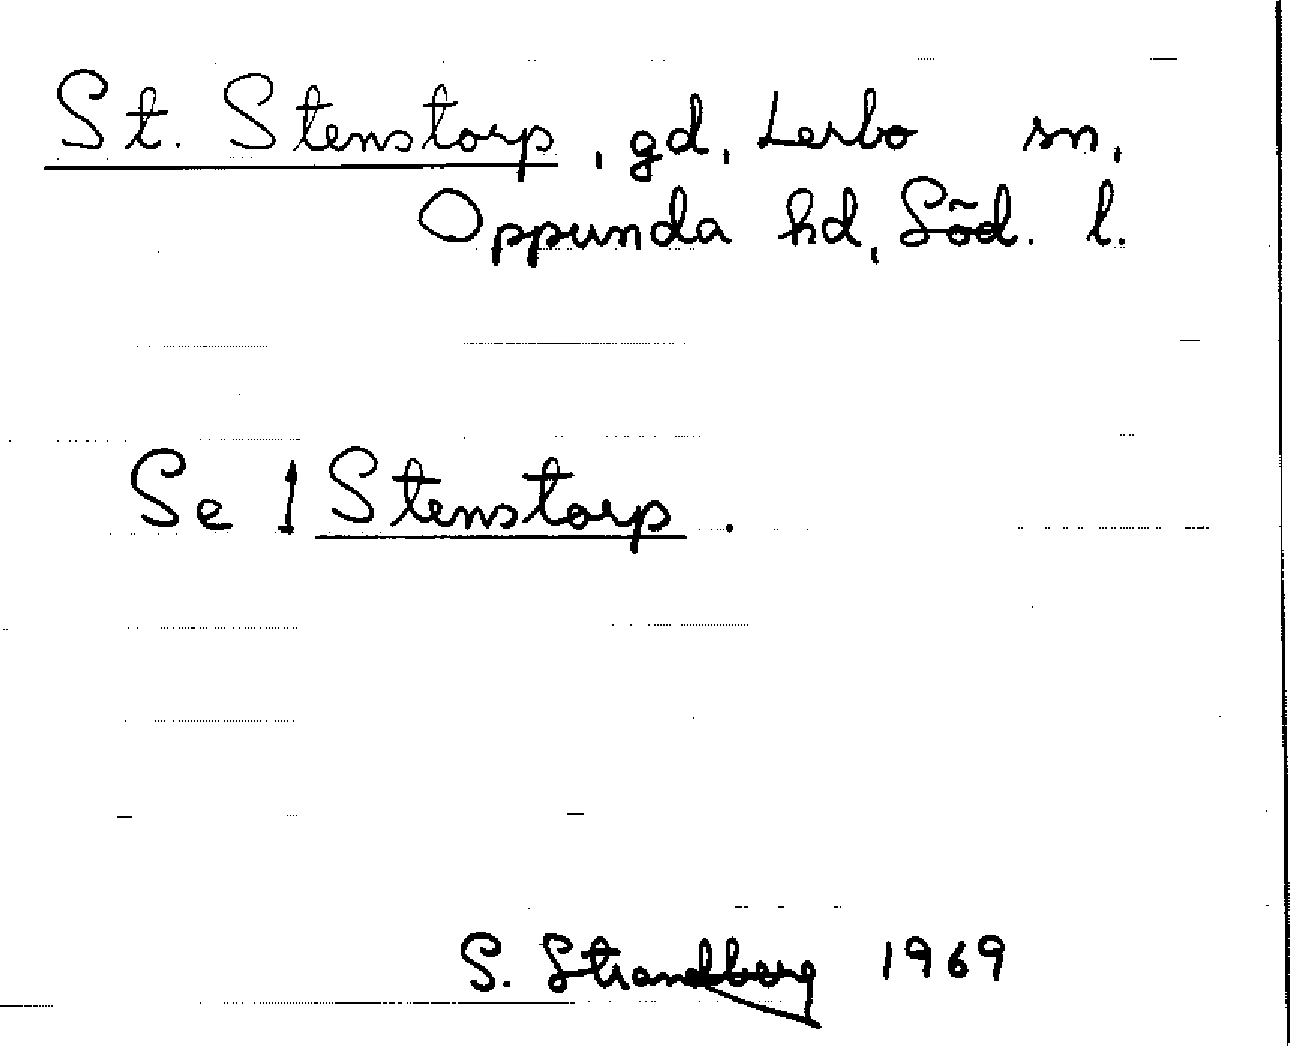 St. Stenstorp, gd, Lerbo sn,
Oppunda hd, Söd. l.
Se 1 Stenstorp.
S. Strandberg 1969